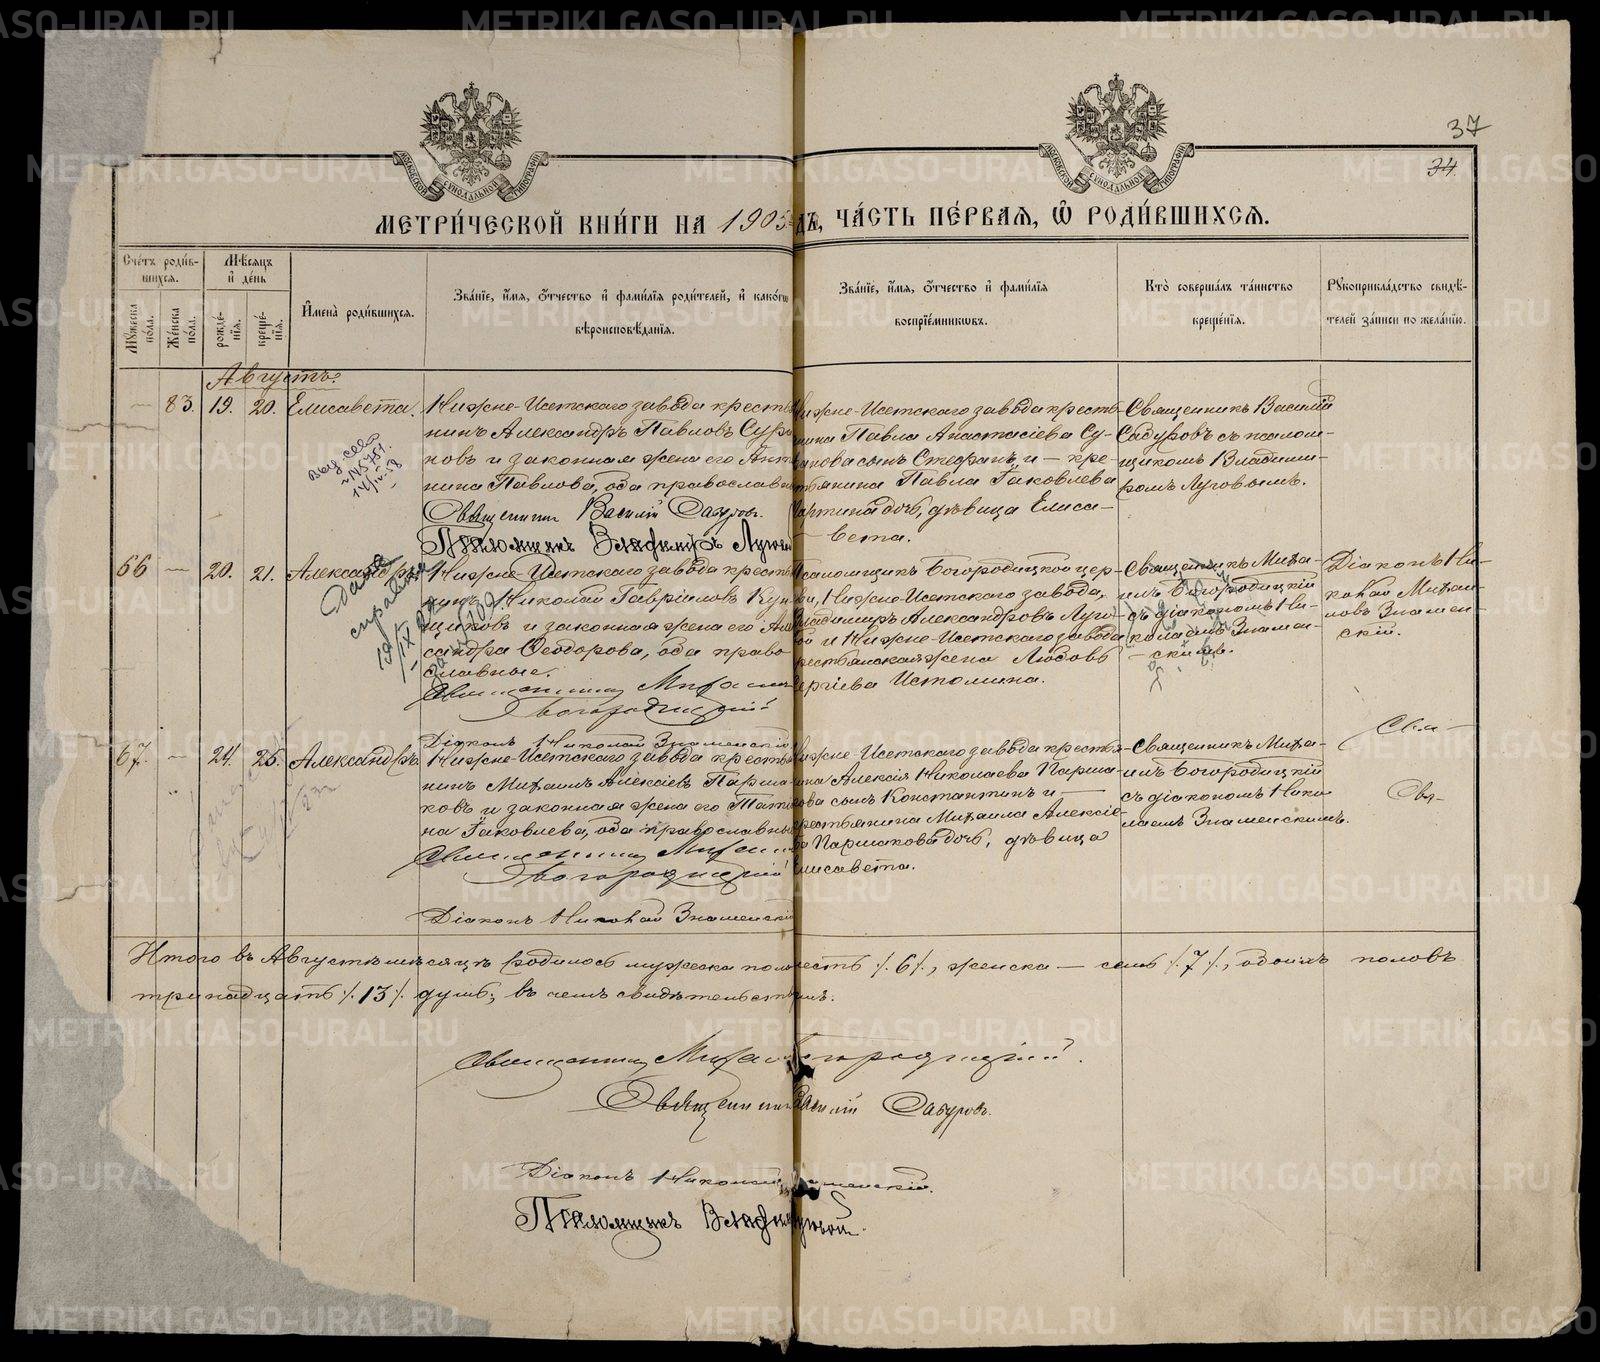 37
34
МЕТРИ́ЧЕСКОЙ КНИ́ГИ НА 1905 ДЪ, ЧА́СТЬ ПЕ́РВАЯ, Ѽ РОДИ́ВШИХСЯ.
Сче́тъ роди́в-
шихся.
Му́жеска по́ла.
Же́нска по́ла.
Мѣ́сяцъ и де́нь
рожде́-нія.
креще́-нія.
Имена̀ роди́вшихся.
Зва́ніе, и́мя, ѻ́тчество и фами́лія роди́телей, и како́гѡ
вѣроисповѣ́данія.
Зва́ніе, и́мя, ѻ́тчество и фами́лія
воспріе́мникѡвъ.
Кто̀ соверша́лъ та́инство
креще́нія.
Рꙋкоприкла́дство свидѣ́-
телей за́писи по жела́нію.
Августъ.
— 83. 19. 20. Елисавета.
Нижне-Исетскаго завода крестья
нинъ Александръ Павловъ Сур
ковъ и законная жена его Ант
нина Павлова, оба православн
Священникъ Василій Сабуровъ.
Псаломщикъ Владимиръ Лугов
ижне-Исетскаго завода кресть-
нина Павла Анастасіева Су-
анова сынъ Стефанъ и — кре-
тьянина Павла Іаковлева
артина дочь, дѣвица Елиса-
— вета.
Священникъ Василій
Сабуровъ съ псалом-
щикомъ Владими-
ромъ Луговымъ.
Выд. свид.
66 — 20. 21. Александръ
Нижне-Исетскаго завода кресть
нинъ Николай Гавріиловъ Кун
щиковъ и законная жена его Але
сандра Ѳеодорова, оба право
славные.
Священникъ Михаилъ
Богородицкій
Діаконъ Николай Знаменскій
Псаломщикъ Богородицкой цер-
ви, Нижне-Исетскаго завода,
Владимиръ Александровъ Луго-
ой и Нижне-Исетскаго завода
рестьянская жена Любовь
ергіева Истомина.
Священникъ Миха-
илъ Богородицкій
съ діакономъ Ни-
колаемъ Знамен-
— скимъ.
Діаконъ Ни-
колай Михаи-
ловъ Знамен-
скій.
Дана
справка
67. — 24. 25. Александръ
Нижне-Исетскаго завода крестья
нинъ Михаилъ Алексіевъ Парша
ковъ и законная жена его Тать
на Іаковлева, оба православны
Священникъ Михаилъ
Богородицкій
Діаконъ Николай Знаменскій
ижне-Исетскаго завода крестья-
ина Алексія Николаева Парша-
кова сынъ Константинъ и —
рестьянина Михаила Алексіе-
ва Паршакова дочь, дѣвица
Елисавета.
Священникъ Миха-
илъ Богородицкій
съ діакономъ Нико-
лаемъ Знаменскимъ.
Итого въ Августѣ мѣсяцѣ родилось мужеска пола шесть ⁒ 6 ⁒, женска — семь ⁒ 7 ⁒, обоихъ половъ
тринадцать ⁒ 13 ⁒ душъ; въ чемъ свидѣтельствуемъ.
Священникъ Михаилъ Богородицкій.
Священникъ Василій Сабуровъ.
Діаконъ Николай Знаменскій.
Псаломщикъ Владимиръ Луговой.
METRIKI.GASO-URAL.RU